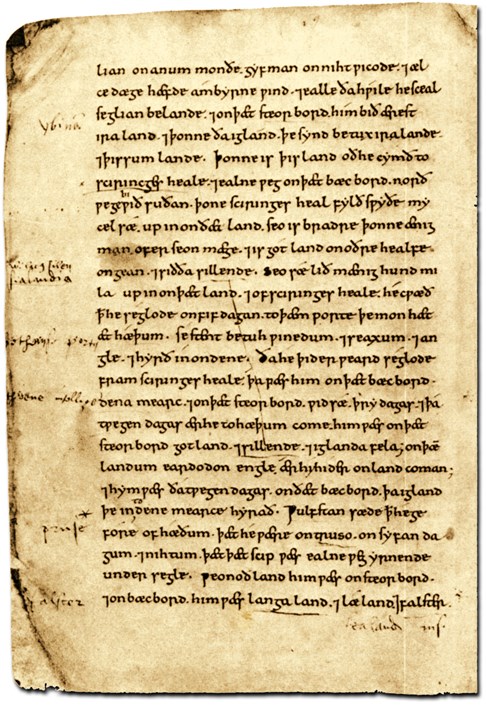 lian on anum monðe. gyf man on niht ƿicode. ⁊ æl
ce dæge hæfde ambyrne ƿind. ⁊ ealle ða hƿile he sceal
seglian be lande. ⁊ on þæt steorbord. him bið ærest
iraland. ⁊ þonne ða igland. þe synd betux iralande.
⁊ þissum lande. þonne is þis land oð he cymð to
sciringes heale. ⁊ ealne ƿeg on þæt bæcbord. norð
ƿege ƿið suðan. þone sciringes heal fylð sƿyðe my
cel sæ. up in on ðæt land. seo is bradre þonne ænig
man. ofer seon mæge. ⁊ is gotland on oðre healfe
ongean. ⁊ siðða sillende. seo sæ lið mænig hund mi
la up in on þæt land. ⁊ of sciringes heale. he cƿæð
ꝥ he seglode on fif dagan. to þæm porte þe mon hæt
æt hæþum. se stent betuh ƿinedum. ⁊ seaxum. ⁊ an
gle. ⁊ hyrð in on dene. ða he þiderƿeard seglode
fram sciringes heale. þa ƿæs him on þæt bæcbord.
denamearc. ⁊ on þæt steorbord. ƿid sæ. þry dagas. ⁊ þa
tƿegen dagas ær he to hæþum come. him ƿæs on þæt
steorbord gotland. ⁊ sillende. ⁊ iglanda fela. on þæm
landum eardodon engle. ær hi hider on land coman;
⁊ hym ƿæs ða tƿegen dagas. on ðæt bæcbord. þa igland
þe in denemearce hyrað. Ƿulfstan sæde ꝥ he ge
fore of hæðum. þæt he ƿære on truso. on syfan da
gum. ⁊ nihtum. þæt þæt scip ƿæs ealne ƿeg yrnende
under segle. ƿeonoðland him ƿæs on steorbord.
⁊ on bæcbord. him ƿæs langaland. ⁊ læland. ⁊ falster.